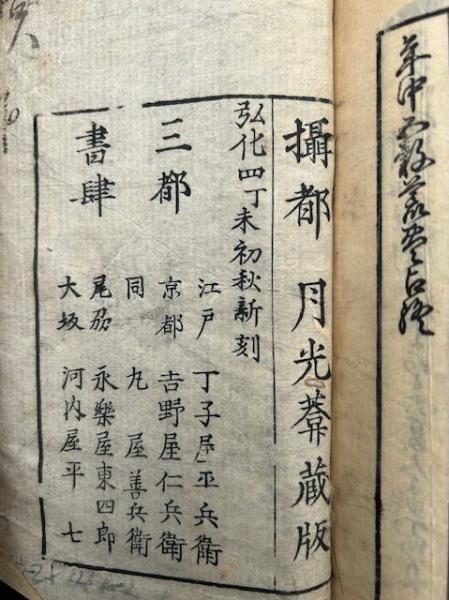 年中五穀
攝都 月光葊蔵版
弘化四丁未初秋新刻
三都
書肆
江戸 丁子屋平兵衛
京都 吉野屋仁兵衛
同 丸屋善兵衛
尾刕 永樂屋東四郎
大坂 河内屋平七